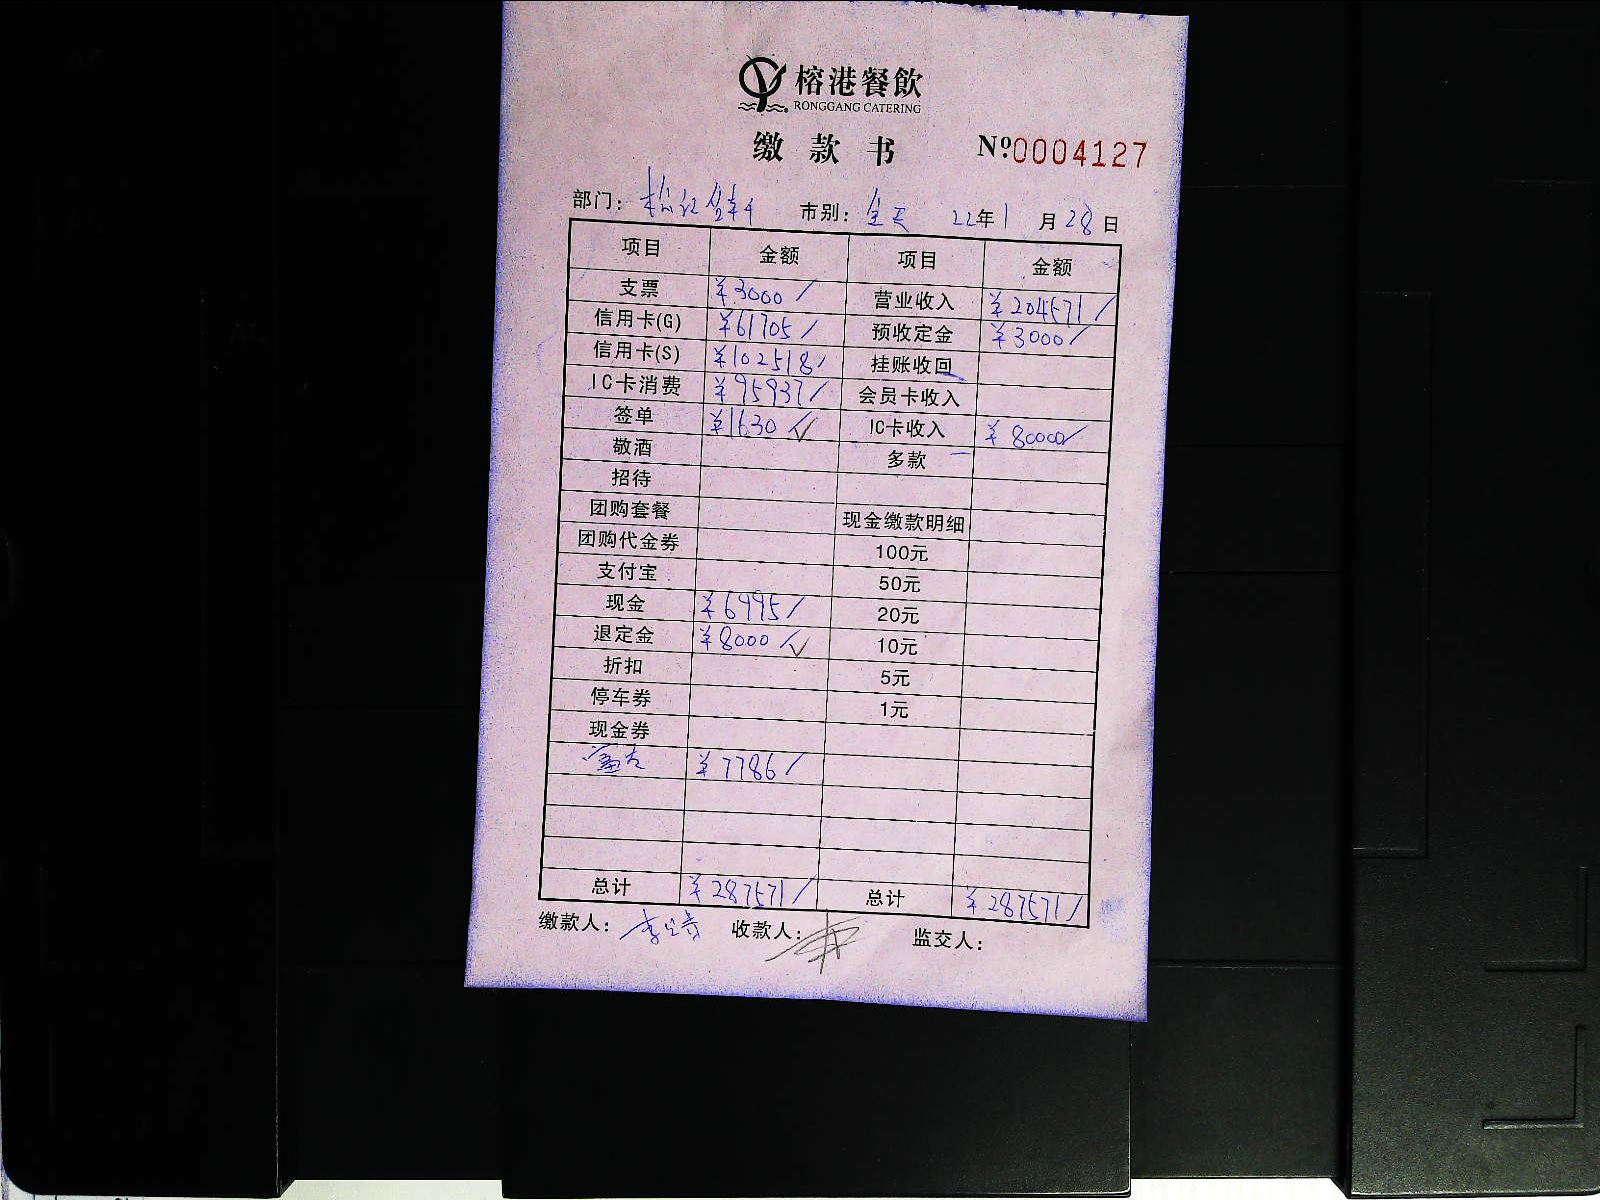 榕港餐飲
RONGGANG CATERING
缴款书 Nº0004127
部门： 松江 市别：全天 22年1月28日
项目 金额 项目 金额
支票 ¥3000 营业收入 ¥204571
信用卡(G) ¥61705 预收定金 ¥3000
信用卡(S) ¥102518 挂账收回
IC卡消费 ¥95937 会员卡收入
签单 ¥1630 IC卡收入 ¥80000
敬酒 多款
招待
团购套餐 现金缴款明细
团购代金券 100元
支付宝 50元
现金 ¥6995 20元
退定金 ¥8000 10元
折扣 5元
停车券 1元
现金券
¥7786
总计 ¥287571 总计 ¥287571
缴款人： 收款人： 监交人：